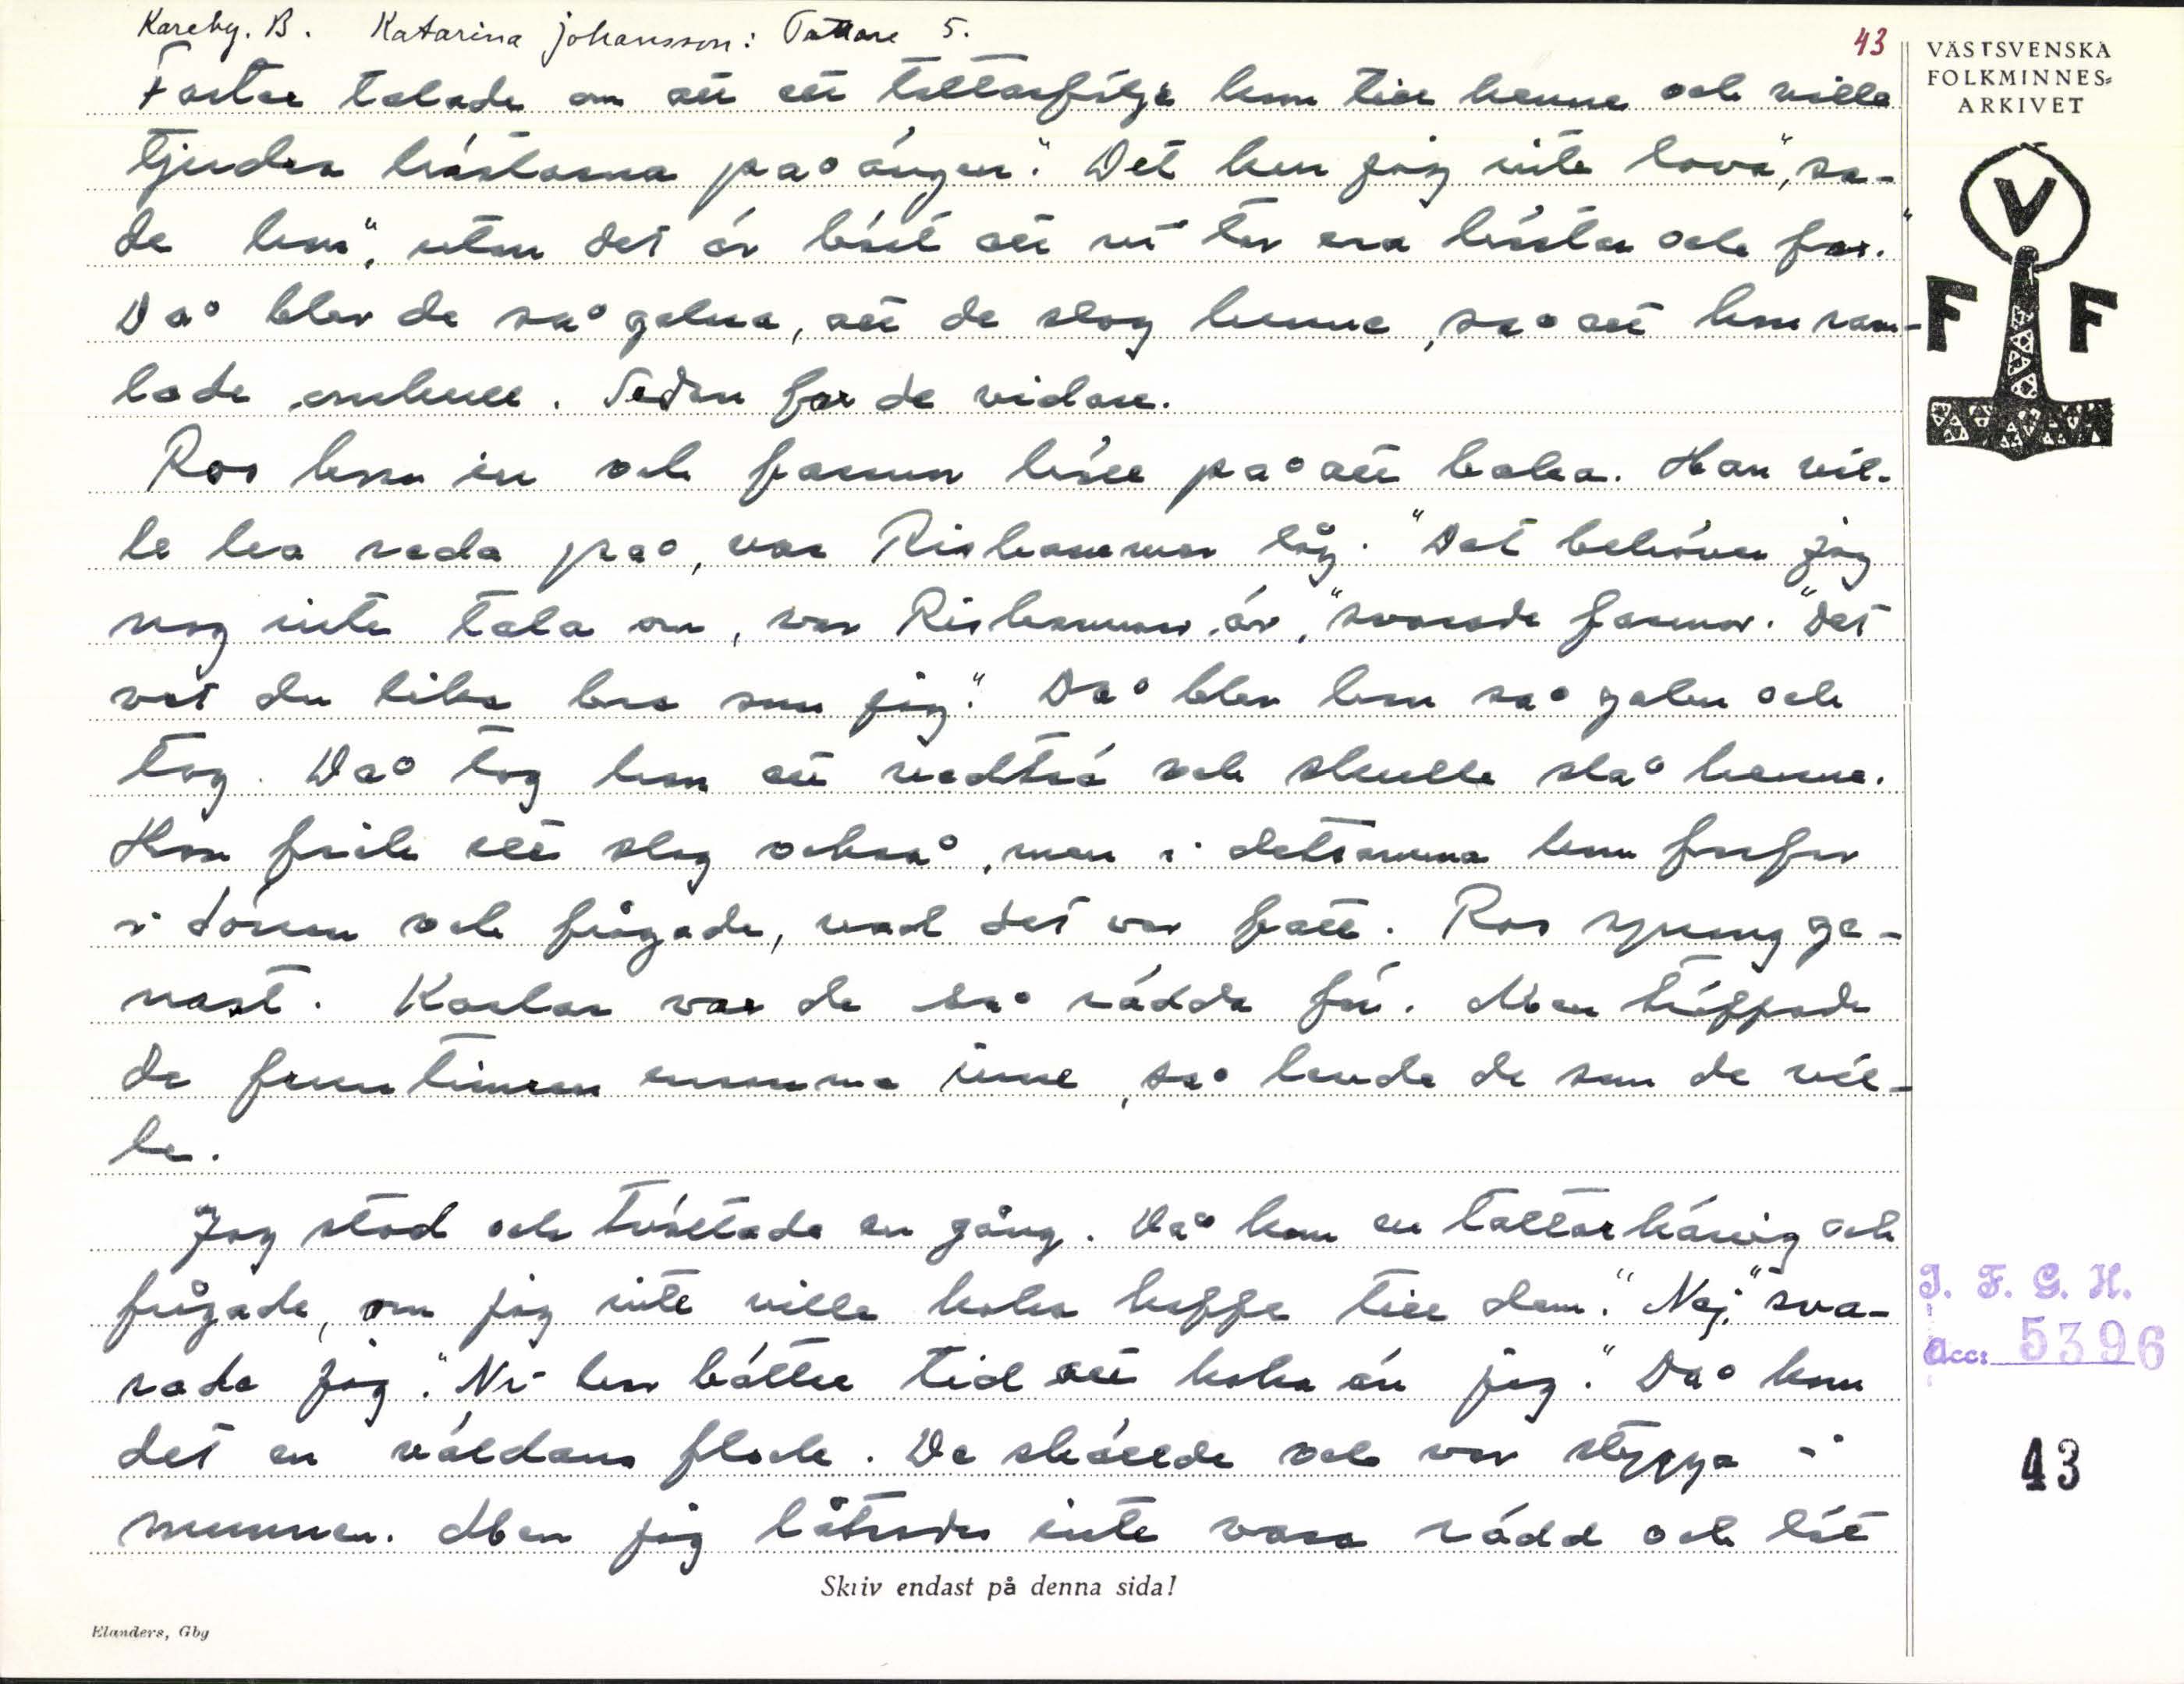 Kareby. B. Katarina Johansson: Tattare 5.
43
Faster talade om att ett tattarfölje kom till henne och ville
tjudra hästarna på ängen. "Det kan jag inte lova", sa-
de hon", utan det är bäst att ni tar era hästar och far."
Då blev de så galna, att de slog henne, så att hon ram-
lade omkull. Sedan for de vidare.
Ros kom in och farmor höll på att baka. Han vil-
le ha reda på, var Rishammar låg. "Det behöver jag
nog inte tala om, var Rishammar är," svarade farmor. "Det
vet du lika bra som jag." Då blev han så galen och
tog. Då tog han ett vedträ och skulle slå henne.
Hon fick ett slag också, men i detsamma kom farfar
i dörren och frågade, vad det var fatt. Ros sprang ge-
nast. Karlar var de så rädda för. Men träffade
de fruntimren ensamma inne, så levde de som de vil-
le.
Jag stod och tvättade en gång. Då kom en tattarkäring och
frågade, om jag inte ville koka kaffe till dem. "Nej," sva-
rade jag. "Ni har bättre tid att koka än jag." Då kom
det en väldans flock. De skällde och var stygga i
munnen. Men jag låtsades inte vara rädd och lät
Skriv endast på denna sida!
Elanders, Gby
VÄSTSVENSKA
FOLKMINNES=
ARKIVET
V
F F
I. F. G. H.
Acc: 5396
43